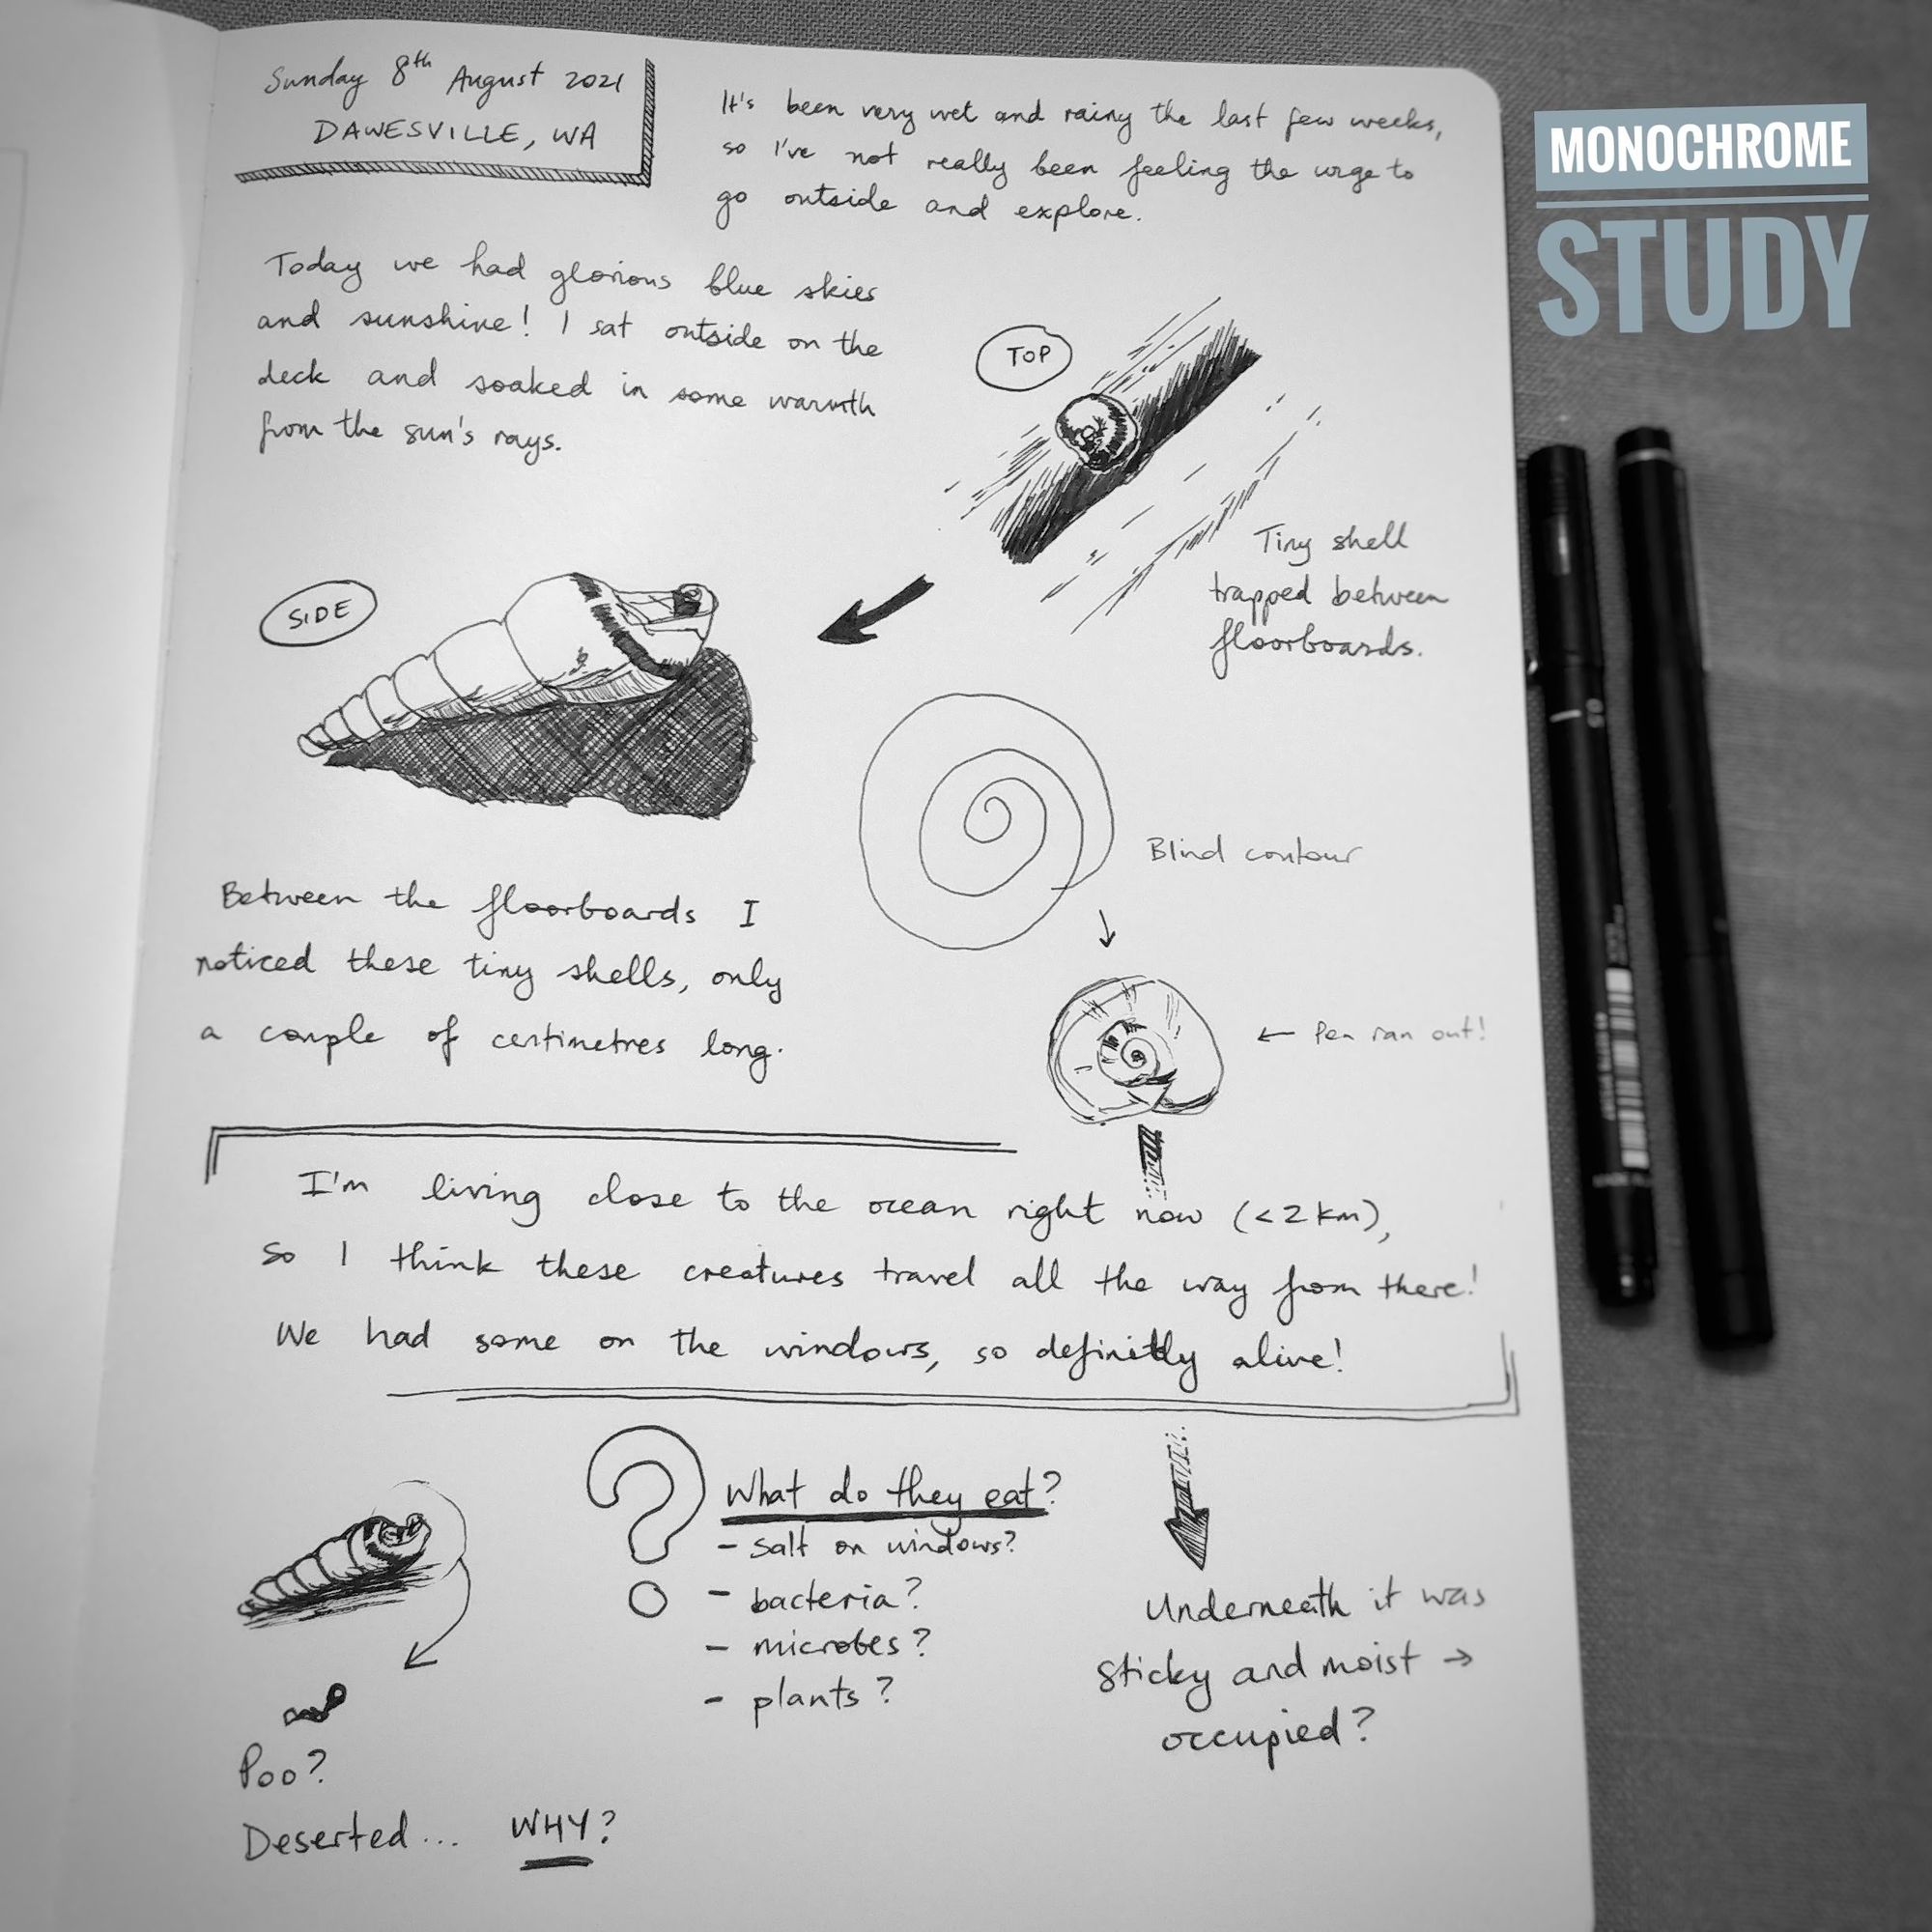 Sunday 8th August 2021
DAWESVILLE, WA
It's been very wet and rainy the last few weeks,
so I've not really been feeling the urge to
go outside and explore.
MONOCHROME
STUDY
Today we had glorious blue skies
and sunshine! I sat outside on the
deck and soaked in some warmth
from the sun's rays.
TOP
Tiny shell
trapped between
floorboards.
SIDE
Blind contour
Between the floorboards I
noticed these tiny shells, only
a couple of centimetres long.
← Pen ran out!
I'm living close to the ocean right now (<2km),
so I think these creatures travel all the way from there!
We had some on the windows, so definitly alive!
What do they eat?
- salt on windows?
- bacteria?
- microbes?
- plants?
Underneath it was
sticky and moist →
occupied?
Poo?
Deserted... WHY?
0.5